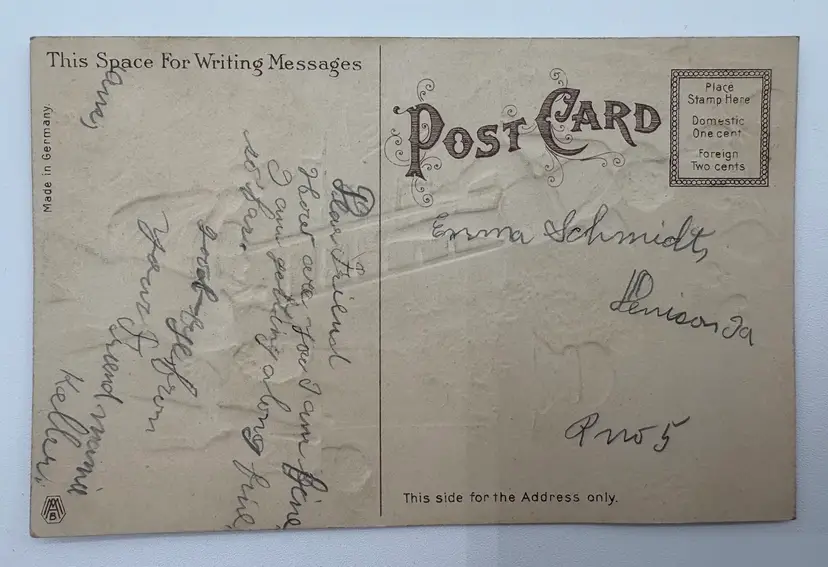 This Space For Writing Messages
Made in Germany.
Dear Friend
How are you I am fine
I am getting along fine,
so far.
good bye from
Your Friend mamie
Keller,
MAB
POST CARD
Place
Stamp Here
Domestic
One cent
Foreign
Two cents
Emma Schmidt,
Denison Ia
R no 5
This side for the Address only.